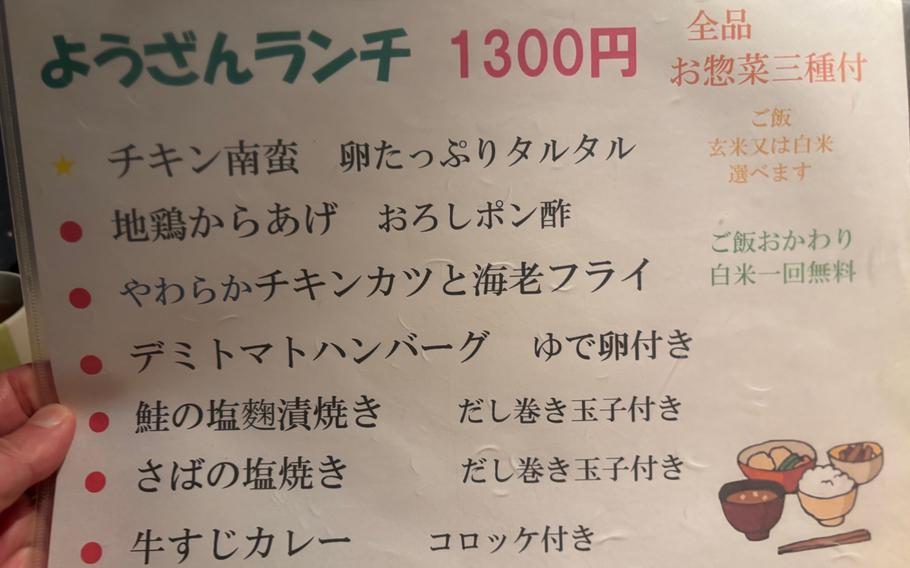 ようざんランチ 1300円
全品
お惣菜三種付
★ チキン南蛮 卵たっぷりタルタル
ご飯
玄米又は白米
選べます
● 地鶏からあげ おろしポン酢
ご飯おかわり
白米一回無料
● やわらかチキンカツと海老フライ
● デミトマトハンバーグ ゆで卵付き
● 鮭の塩麴漬焼き だし巻き玉子付き
● さばの塩焼き だし巻き玉子付き
● 牛すじカレー コロッケ付き